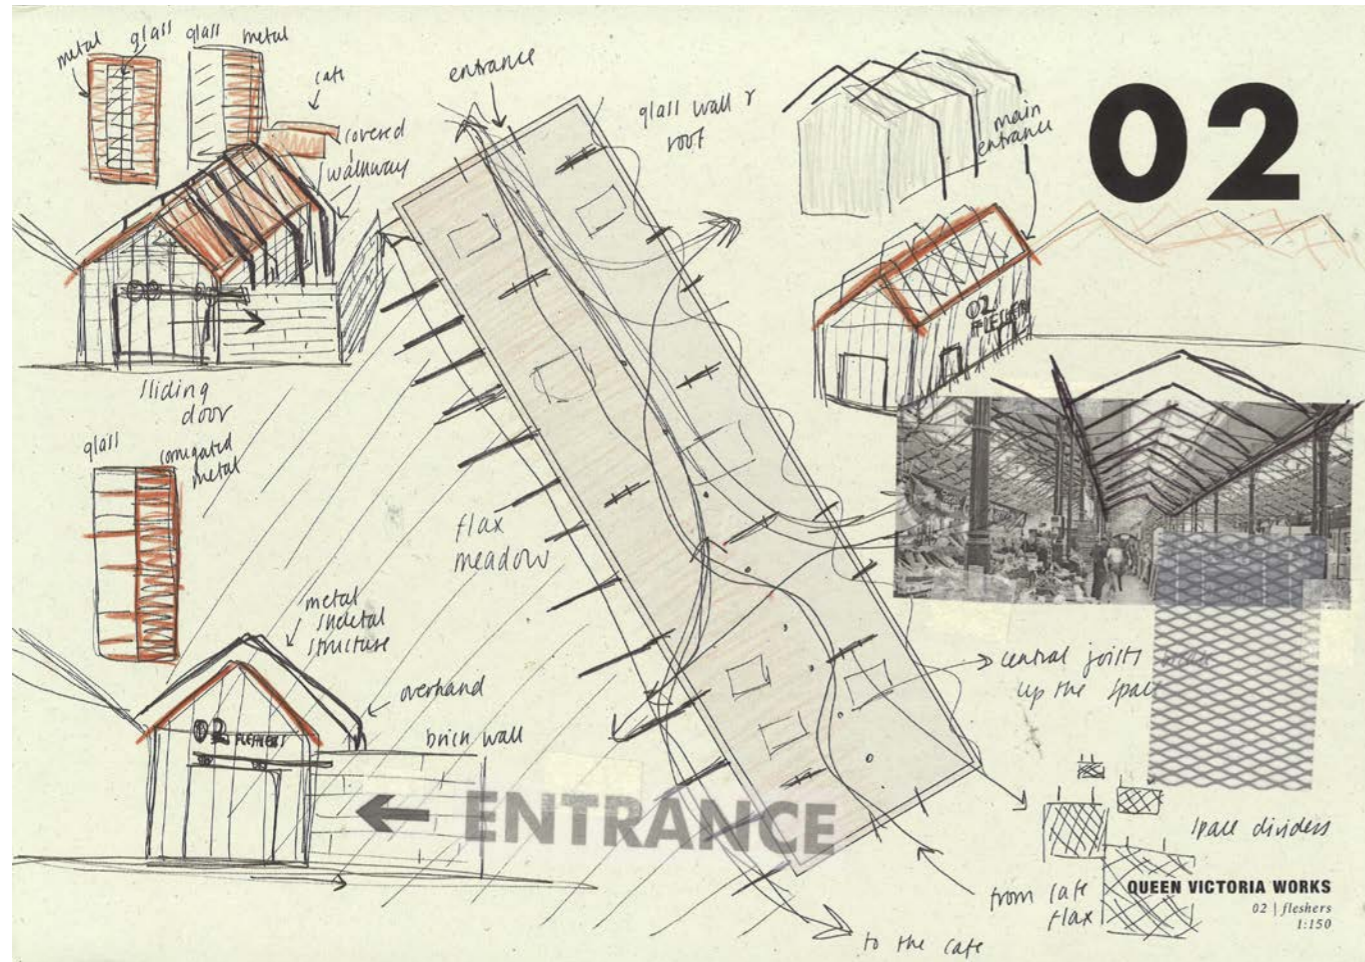 metal
glass
glass
metal
cafe
covered
walkway
entrance
glass wall &
roof
main
entrance
02
02
FLESHERS
sliding
door
glass
corrugated
metal
flax
meadow
metal
skeletal
structure
overhand
brick wall
02 FLESHERS
ENTRANCE
central joists
up the space
space dividers
from cafe
flax
to the cafe
QUEEN VICTORIA WORKS
02 | fleshers
1:150